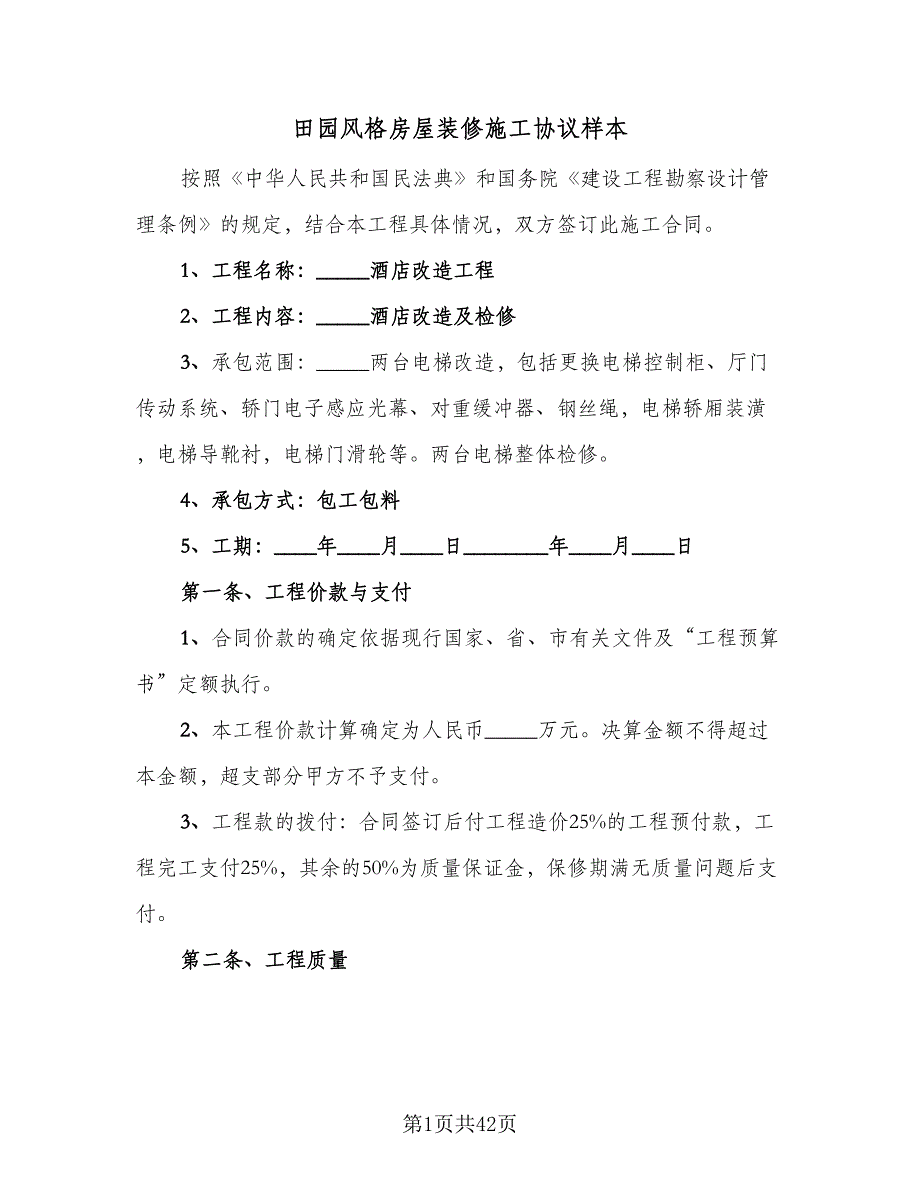 田园风格房屋装修施工协议样本
按照《中华人民共和国民法典》和国务院《建设工程勘察设计管
理条例》的规定，结合本工程具体情况，双方签订此施工合同。
1、工程名称：_____酒店改造工程
2、工程内容：_____酒店改造及检修
3、承包范围：_____两台电梯改造，包括更换电梯控制柜、厅门
传动系统、轿门电子感应光幕、对重缓冲器、钢丝绳，电梯轿厢装潢
，电梯导靴衬，电梯门滑轮等。两台电梯整体检修。
4、承包方式：包工包料
5、工期：____年____月____日________年____月____日
第一条、工程价款与支付
1、合同价款的确定依据现行国家、省、市有关文件及“工程预算
书”定额执行。
2、本工程价款计算确定为人民币_____万元。决算金额不得超过
本金额，超支部分甲方不予支付。
3、工程款的拨付：合同签订后付工程造价25%的工程预付款，工
程完工支付25%，其余的50%为质量保证金，保修期满无质量问题后支
付。
第二条、工程质量
第1页共42页